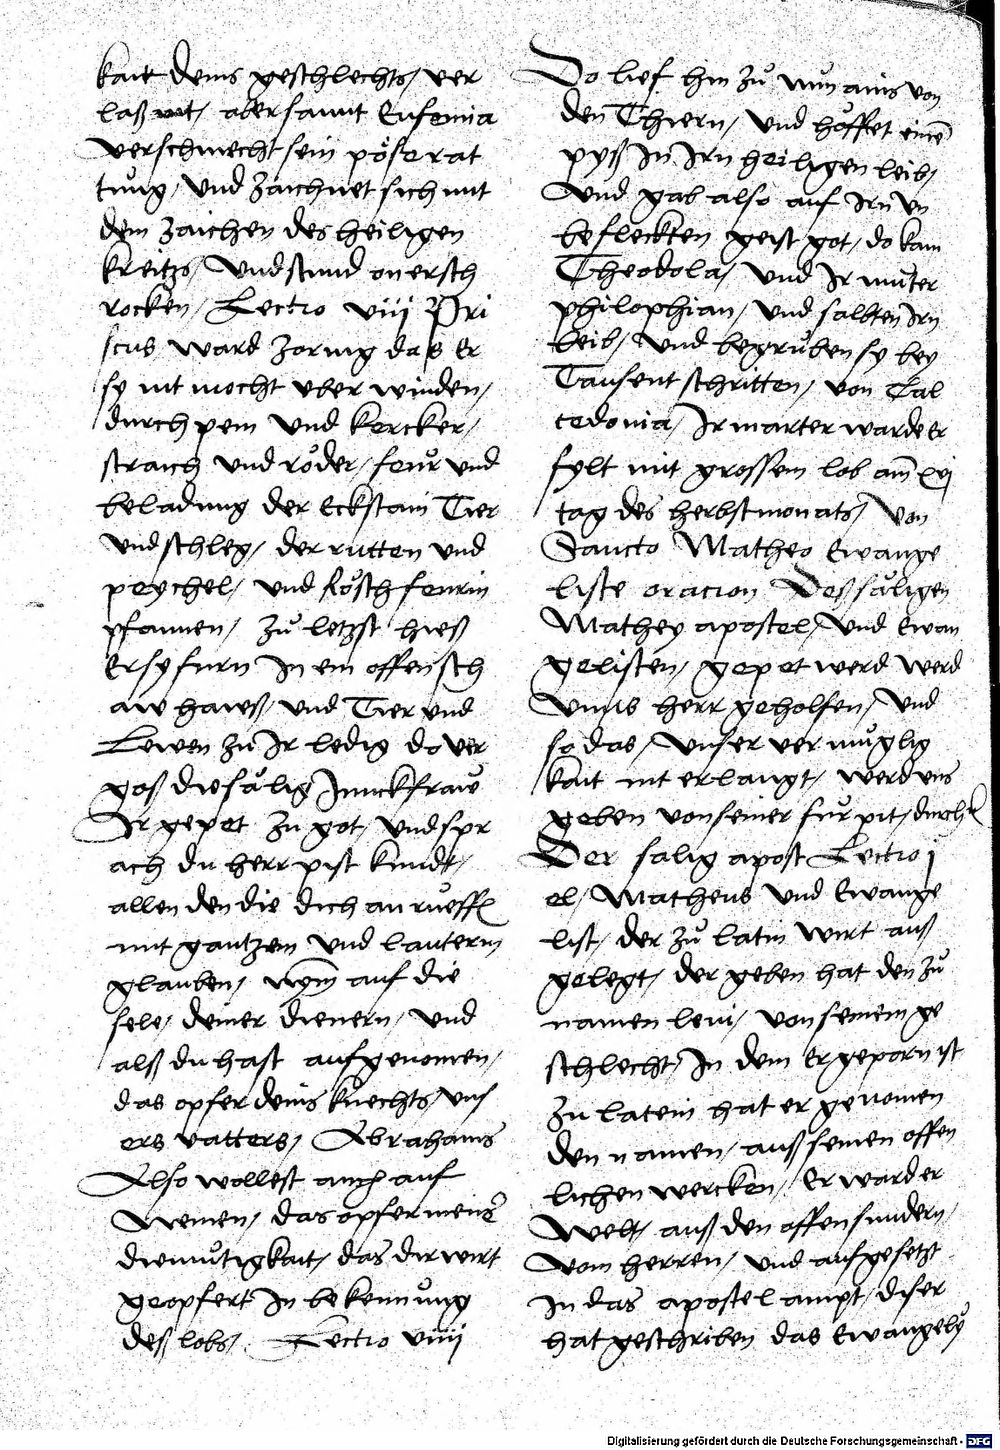 kait deins geschlechts / ver
laß nit / aber sannt Eufemia
verschmecht sein pöse rat
tung / und zaichnet sich mit
dem zaichen des heiligen
kreitzs / und stund on ersch
rocken / Lectio viij Pri
scus ward zornig das Er
sy nit mocht uber winden /
durch pein und kercker /
straich und röder / feur und
beladung der Eckstain Tier
und schleg / der rutten und
peychel / und Rösch feurin
pfannen / zu letzst hieß
Er sy furn In ein offen sch
aw hawß / und Tier und
Lewen zu Ir ledig do ver
goß die sälig Junckfraw
Ir gepet zu got / und spr
ach du herr pist kundt /
allen den die dich an rueffen
mit gantzem und lauterm
glauben / nym auf die
sele / deiner dienern / und
alß du hast aufgenomen /
das opfer deins knechts / uns
ers vatters / Abrahams
Also wollest auch auf
Nemen / das opfer meiner
diemutigkait / das dir wirt
geopfert In bekennung
deß lobs / Lectio viiij
Do lief hin zu Nun ains von
den Thiern / und hoffet einen
pyß In Irn heiligen leib /
und gab also auf Irn un
befleckten geist got / do kam
Theodola / und Ir muter
philophian / und salbten Irn
leib / und begruben sy bey
Tausent schritten / von Cal
cedonia / Ir marter warde er
fylt mit grossem lob am xvj
tag des herbstmonats / von
Sancto Matheo Ewange
liste oracion Deß säligen
Mathey apostel / und Ewan
gelisten / gepet werd werd
unns herr geholfen / und
so das / unser vermuglig
kait nit erlangt / werd uns
geben von seiner furpit / durch
Der sälig apost Lectio j
el / Matheus und Ewange
list / der zu latin wirt auß
gelegt / der geben hat den zu
namen levi / von seinem ge
schlecht / In dem er geporn ist
zu latein hat er genomen
den namen / auß seinen offen
lichen wercken / Er ward er
welt / auß den offen sundern /
vom herren / und aufgesetzt
In das apostel ampt / diser
hat geschriben das Ewangely
Digitalisierung gefördert durch die Deutsche Forschungsgemeinschaft - DFG